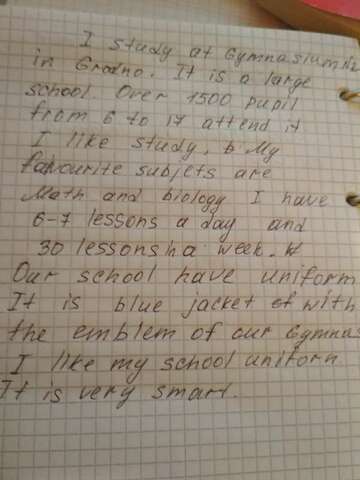 I study at Gymnasium №
in Grodno. It is a large
school Over 1500 pupil
from 6 to 17 attend it
I like study, b My
favourite subjets are
Math and biology I have
6-7 lessons a day and
30 lessons a week.
Our school have uniform
It is blue jacket with
the emblem of our Gymnas
I like my school uniform
It is very smart.